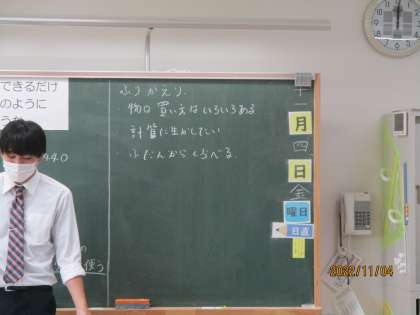 できるだけ
のように
440
使う
ふりかえり.
物の買い方はいろいろある
計算に生かしたい
ふだんからくらべる.
十一
月
四
日
金
曜日
日直
2022/11/04